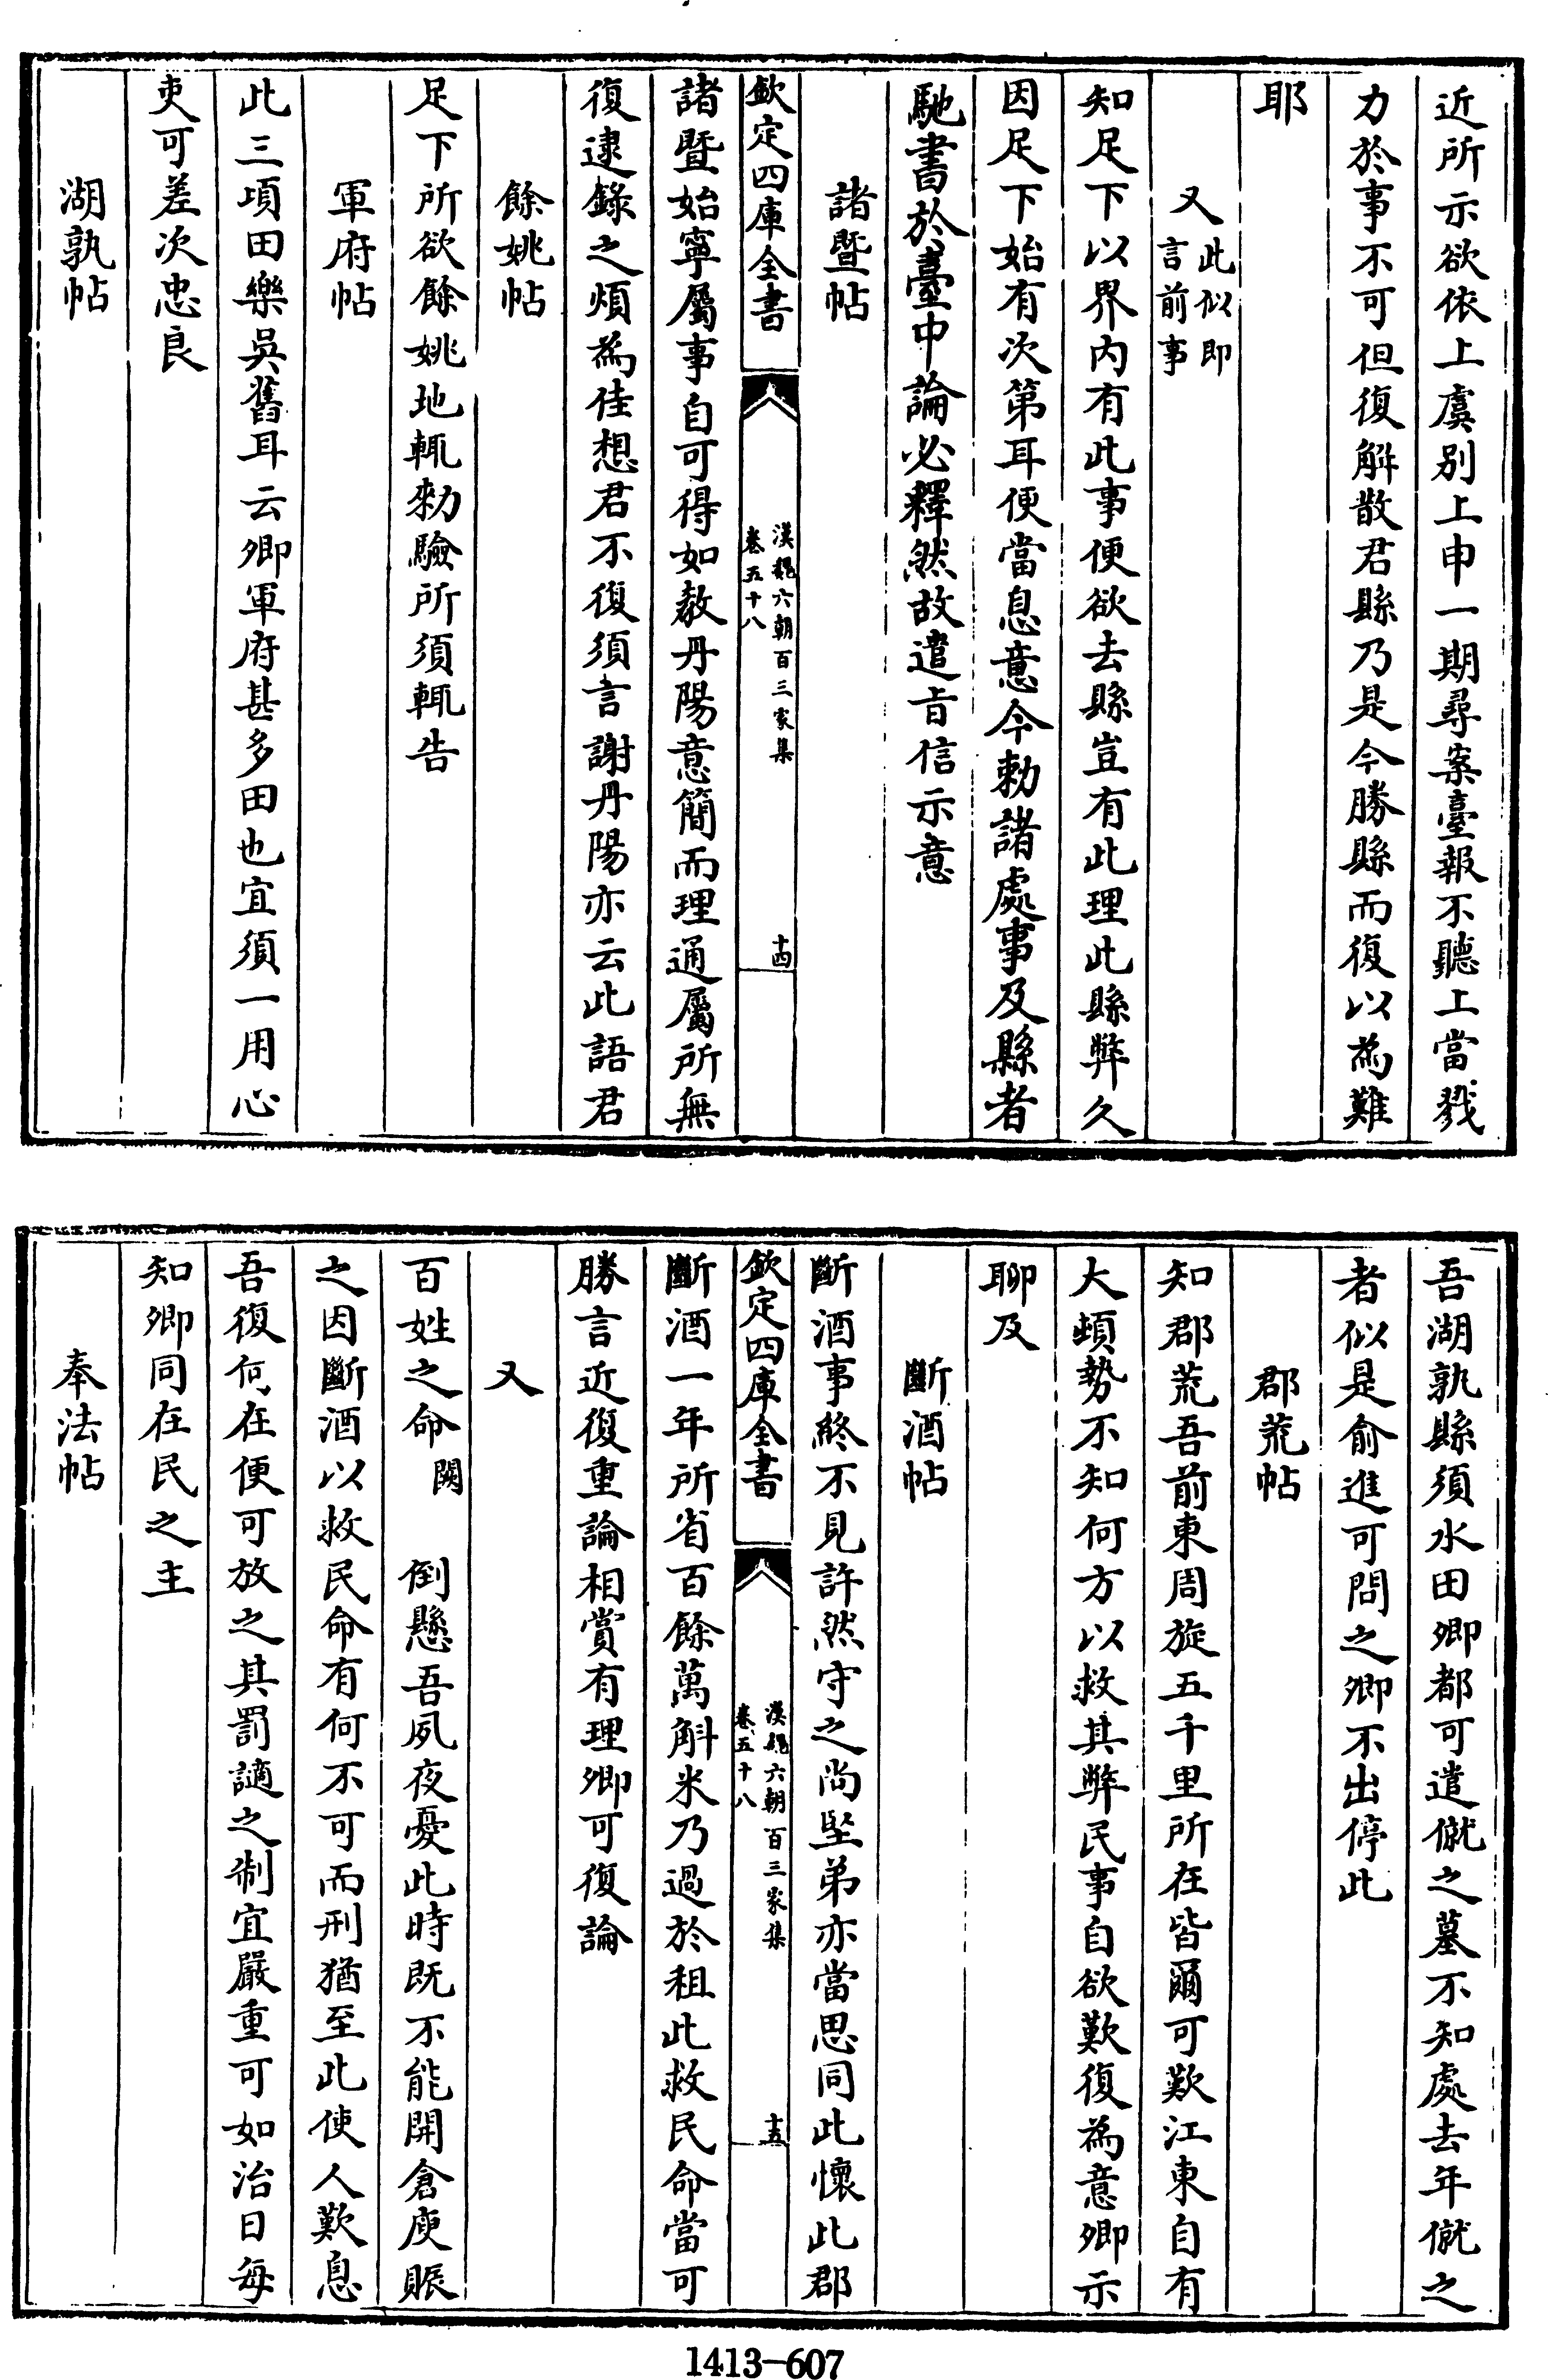 近所示欲依上虞别上申一期尋案臺報不聽上當戮
力於事不可但復解散君縣乃是今勝縣而復以為難
耶
又此似即言前事
知足下以界内有此事便欲去縣豈有此理此縣弊久
因足下始有次第耳便當息意今勅諸處事及縣者
馳書於臺中論必釋然故遣旨信示意
諸暨帖
欽定四庫全書
漢魏六朝百三家集
卷五十八
十四
諸暨始寧屬事自可得如教丹陽意簡而理通屬所無
復逮錄之煩為佳想君不復須言謝丹陽亦云此語君
餘姚帖
足下所欲餘姚地輒勑驗所須輒告
軍府帖
此三項田樂吳舊耳云卿軍府甚多田也宜須一用心
吏可差次忠良
湖孰帖
吾湖孰縣須水田卿都可遣僦之墓不知處去年僦之
者似是俞進可問之卿不出停此
郡荒帖
知郡荒吾前東周旋五千里所在皆爾可歎江東自有
大頓勢不知何方以救其弊民事自欲歎復為意卿示
聊及
斷酒帖
斷酒事終不見許然守之尚堅弟亦當思同此懷此郡
欽定四庫全書
漢魏六朝百三家集
卷五十八
十五
斷酒一年所省百餘萬斛米乃過於租此救民命當可
勝言近復重論相賞有理卿可復論
又
百姓之命闕 倒懸吾夙夜憂此時既不能開倉庾賑
之因斷酒以救民命有何不可而刑猶至此使人歎息
吾復何在便可放之其罰謫之制宜嚴重可如治日每
知卿同在民之主
奉法帖
1413-607